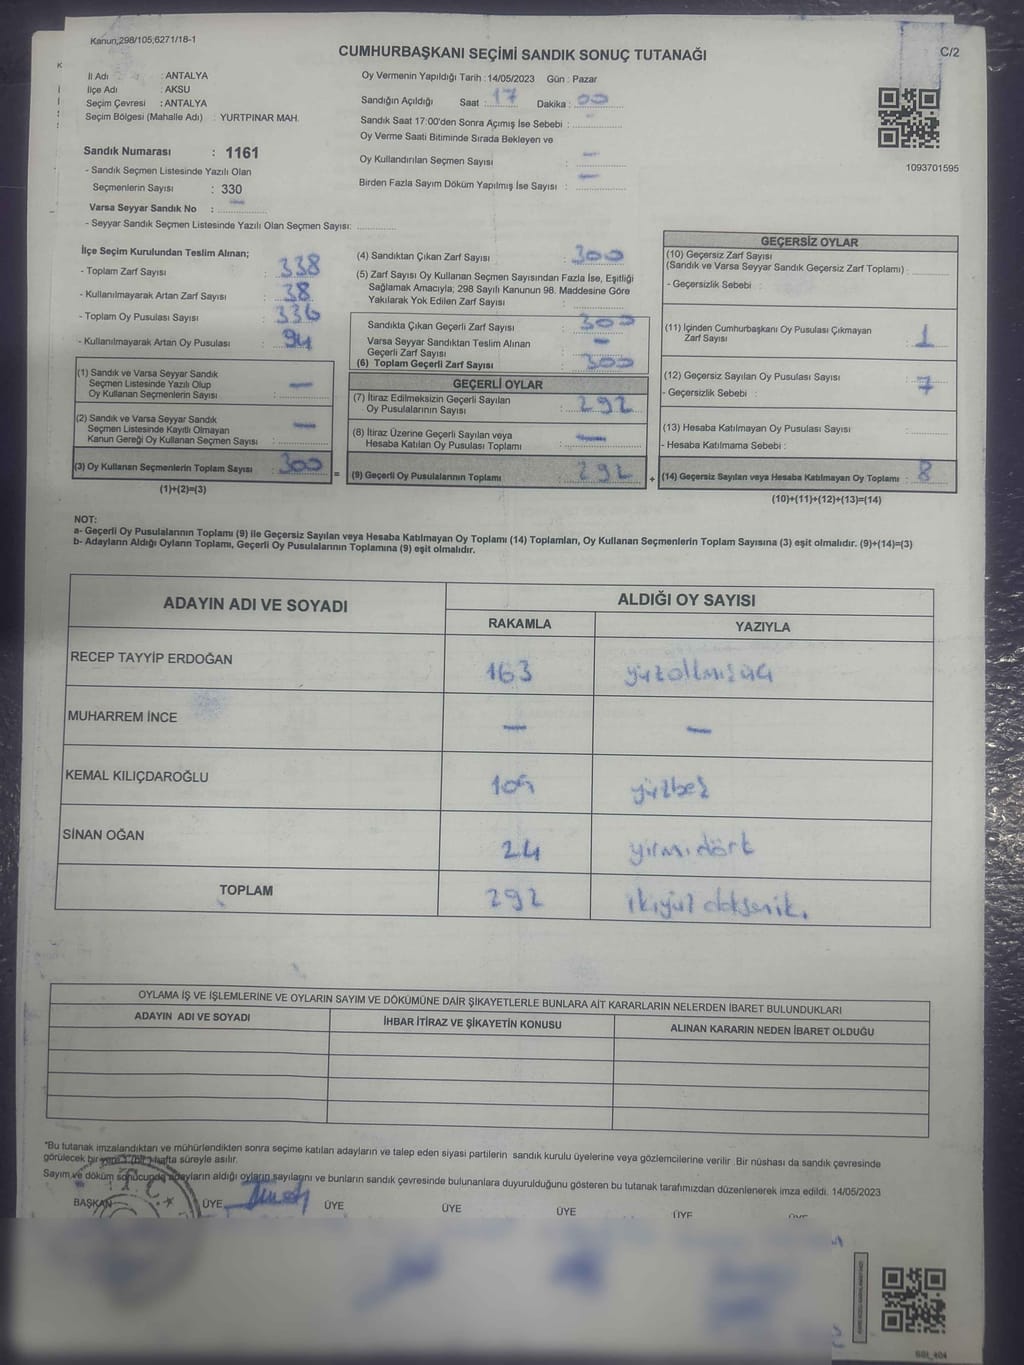 Kanun,298/105,6271/18-1
CUMHURBAŞKANI SEÇİMİ SANDIK SONUÇ TUTANAĞI
C/2
İl Adı : ANTALYA
İlçe Adı : AKSU
Seçim Çevresi : ANTALYA
Seçim Bölgesi (Mahalle Adı) : YURTPINAR MAH.
Sandık Numarası : 1161
- Sandık Seçmen Listesinde Yazılı Olan
Seçmenlerin Sayısı : 330
Varsa Seyyar Sandık No : —
- Seyyar Sandık Seçmen Listesinde Yazılı Olan Seçmen Sayısı:
Oy Vermenin Yapıldığı Tarih : 14/05/2023 Gün : Pazar
Sandığın Açıldığı Saat : 17 Dakika : 00
Sandık Saat 17:00'den Sonra Açımış İse Sebebi :
Oy Verme Saati Bitiminde Sırada Bekleyen ve
Oy Kullandırılan Seçmen Sayısı : —
Birden Fazla Sayım Döküm Yapılmış İse Sayısı : —
1093701595
İlçe Seçim Kurulundan Teslim Alınan;
- Toplam Zarf Sayısı : 338
- Kullanılmayarak Artan Zarf Sayısı : 38
- Toplam Oy Pusulası Sayısı : 336
- Kullanılmayarak Artan Oy Pusulası : 94
(1) Sandık ve Varsa Seyyar Sandık
Seçmen Listesinde Yazılı Olup
Oy Kullanan Seçmenlerin Sayısı : —
(2) Sandık ve Varsa Seyyar Sandık
Seçmen Listesinde Kayıtlı Olmayan
Kanun Gereği Oy Kullanan Seçmen Sayısı : —
(3) Oy Kullanan Seçmenlerin Toplam Sayısı : 300
(1)+(2)=(3)
=
(4) Sandıktan Çıkan Zarf Sayısı : 300
(5) Zarf Sayısı Oy Kullanan Seçmen Sayısından Fazla İse, Eşitliği
Sağlamak Amacıyla; 298 Sayılı Kanunun 98. Maddesine Göre
Yakılarak Yok Edilen Zarf Sayısı :
Sandıkta Çıkan Geçerli Zarf Sayısı : 300
Varsa Seyyar Sandıktan Teslim Alınan
Geçerli Zarf Sayısı : —
(6) Toplam Geçerli Zarf Sayısı : 300
GEÇERLİ OYLAR
(7) İtiraz Edilmeksizin Geçerli Sayılan
Oy Pusulalarının Sayısı : 292
(8) İtiraz Üzerine Geçerli Sayılan veya
Hesaba Katılan Oy Pusulası Toplamı : —
(9) Geçerli Oy Pusulalarının Toplamı : 292
+
GEÇERSİZ OYLAR
(10) Geçersiz Zarf Sayısı
(Sandık ve Varsa Seyyar Sandık Geçersiz Zarf Toplamı) :
- Geçersizlik Sebebi :
(11) İçinden Cumhurbaşkanı Oy Pusulası Çıkmayan
Zarf Sayısı : 1
(12) Geçersiz Sayılan Oy Pusulası Sayısı : 7
- Geçersizlik Sebebi :
(13) Hesaba Katılmayan Oy Pusulası Sayısı :
- Hesaba Katılmama Sebebi :
(14) Geçersiz Sayılan veya Hesaba Katılmayan Oy Toplamı : 8
(10)+(11)+(12)+(13)=(14)
NOT:
a- Geçerli Oy Pusulalarının Toplamı (9) ile Geçersiz Sayılan veya Hesaba Katılmayan Oy Toplamı (14) Toplamları, Oy Kullanan Seçmenlerin Toplam Sayısına (3) eşit olmalıdır. (9)+(14)=(3)
b- Adayların Aldığı Oyların Toplamı, Geçerli Oy Pusulalarının Toplamına (9) eşit olmalıdır.
ADAYIN ADI VE SOYADI
ALDIĞI OY SAYISI
RAKAMLA YAZIYLA
RECEP TAYYİP ERDOĞAN 163 yüzaltmışüç
MUHARREM İNCE — —
KEMAL KILIÇDAROĞLU 105 yüzbeş
SİNAN OĞAN 24 yirmidört
TOPLAM 292 ikiyüz doksaniki
OYLAMA İŞ VE İŞLEMLERİNE VE OYLARIN SAYIM VE DÖKÜMÜNE DAİR ŞİKAYETLERLE BUNLARA AİT KARARLARIN NELERDEN İBARET BULUNDUKLARI
ADAYIN ADI VE SOYADI İHBAR İTİRAZ VE ŞİKAYETİN KONUSU ALINAN KARARIN NEDEN İBARET OLDUĞU
*Bu tutanak imzalandıktan ve mühürlendikten sonra seçime katılan adayların ve talep eden siyasi partilerin sandık kurulu üyelerine veya gözlemcilerine verilir Bir nüshası da sandık çevresinde
görülecek bir yere 1 (bir) hafta süreyle asılır.
Sayım ve döküm sonucunda adayların aldığı oyların sayılarını ve bunların sandık çevresinde bulunanlara duyurulduğunu gösteren bu tutanak tarafımızdan düzenlenerek imza edildi. 14/05/2023
BAŞKAN ÜYE ÜYE ÜYE ÜYE ÜYE ÜYE
T.C.